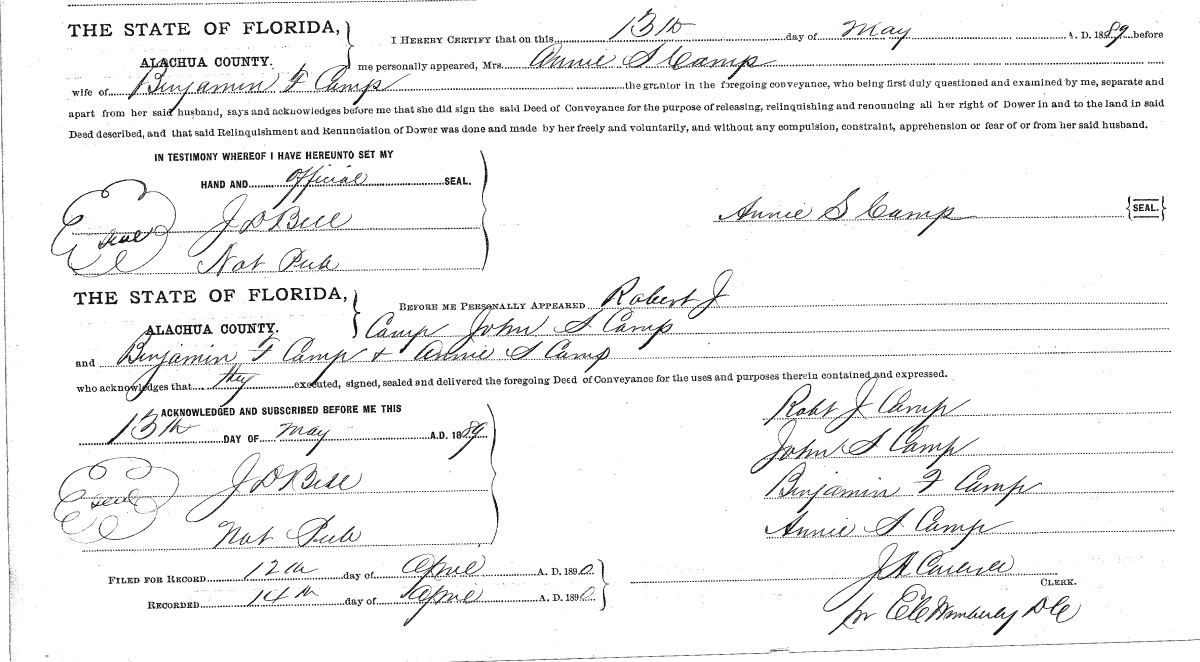 THE STATE OF FLORIDA,
ALACHUA COUNTY.
I HEREBY CERTIFY that on this 13th day of May A. D. 1889 before
me personally appeared, Mrs. Annie S Camp
wife of Benjamin F Camp the grantor in the foregoing conveyance, who being first duly questioned and examined by me, separate and
apart from her said husband, says and acknowledges before me that she did sign the said Deed of Conveyance for the purpose of releasing, relinquishing and renouncing all her right of Dower in and to the land in said
Deed described, and that said Relinquishment and Renunciation of Dower was done and made by her freely and voluntarily, and without any compulsion, constraint, apprehension or fear of or from her said husband.
IN TESTIMONY WHEREOF I HAVE HEREUNTO SET MY
HAND AND official SEAL.
seal
J D Bell
Not Pub
Annie S Camp {SEAL.}
THE STATE OF FLORIDA,
ALACHUA COUNTY.
BEFORE ME PERSONALLY APPEARED Robert J
Camp John S Camp
and Benjamin F Camp & Annie S Camp
who acknowledges that they executed, signed, sealed and delivered the foregoing Deed of Conveyance for the uses and purposes therein contained and expressed.
ACKNOWLEDGED AND SUBSCRIBED BEFORE ME THIS
13th DAY OF May A.D. 1889
seal
J D Bell
Not Pub
Robt J Camp
John S Camp
Benjamin F Camp
Annie S Camp
FILED FOR RECORD 12th day of April A. D. 1890
RECORDED 14th day of April A. D. 1890
J A Carlisle
CLERK.
pr Wimberly D C